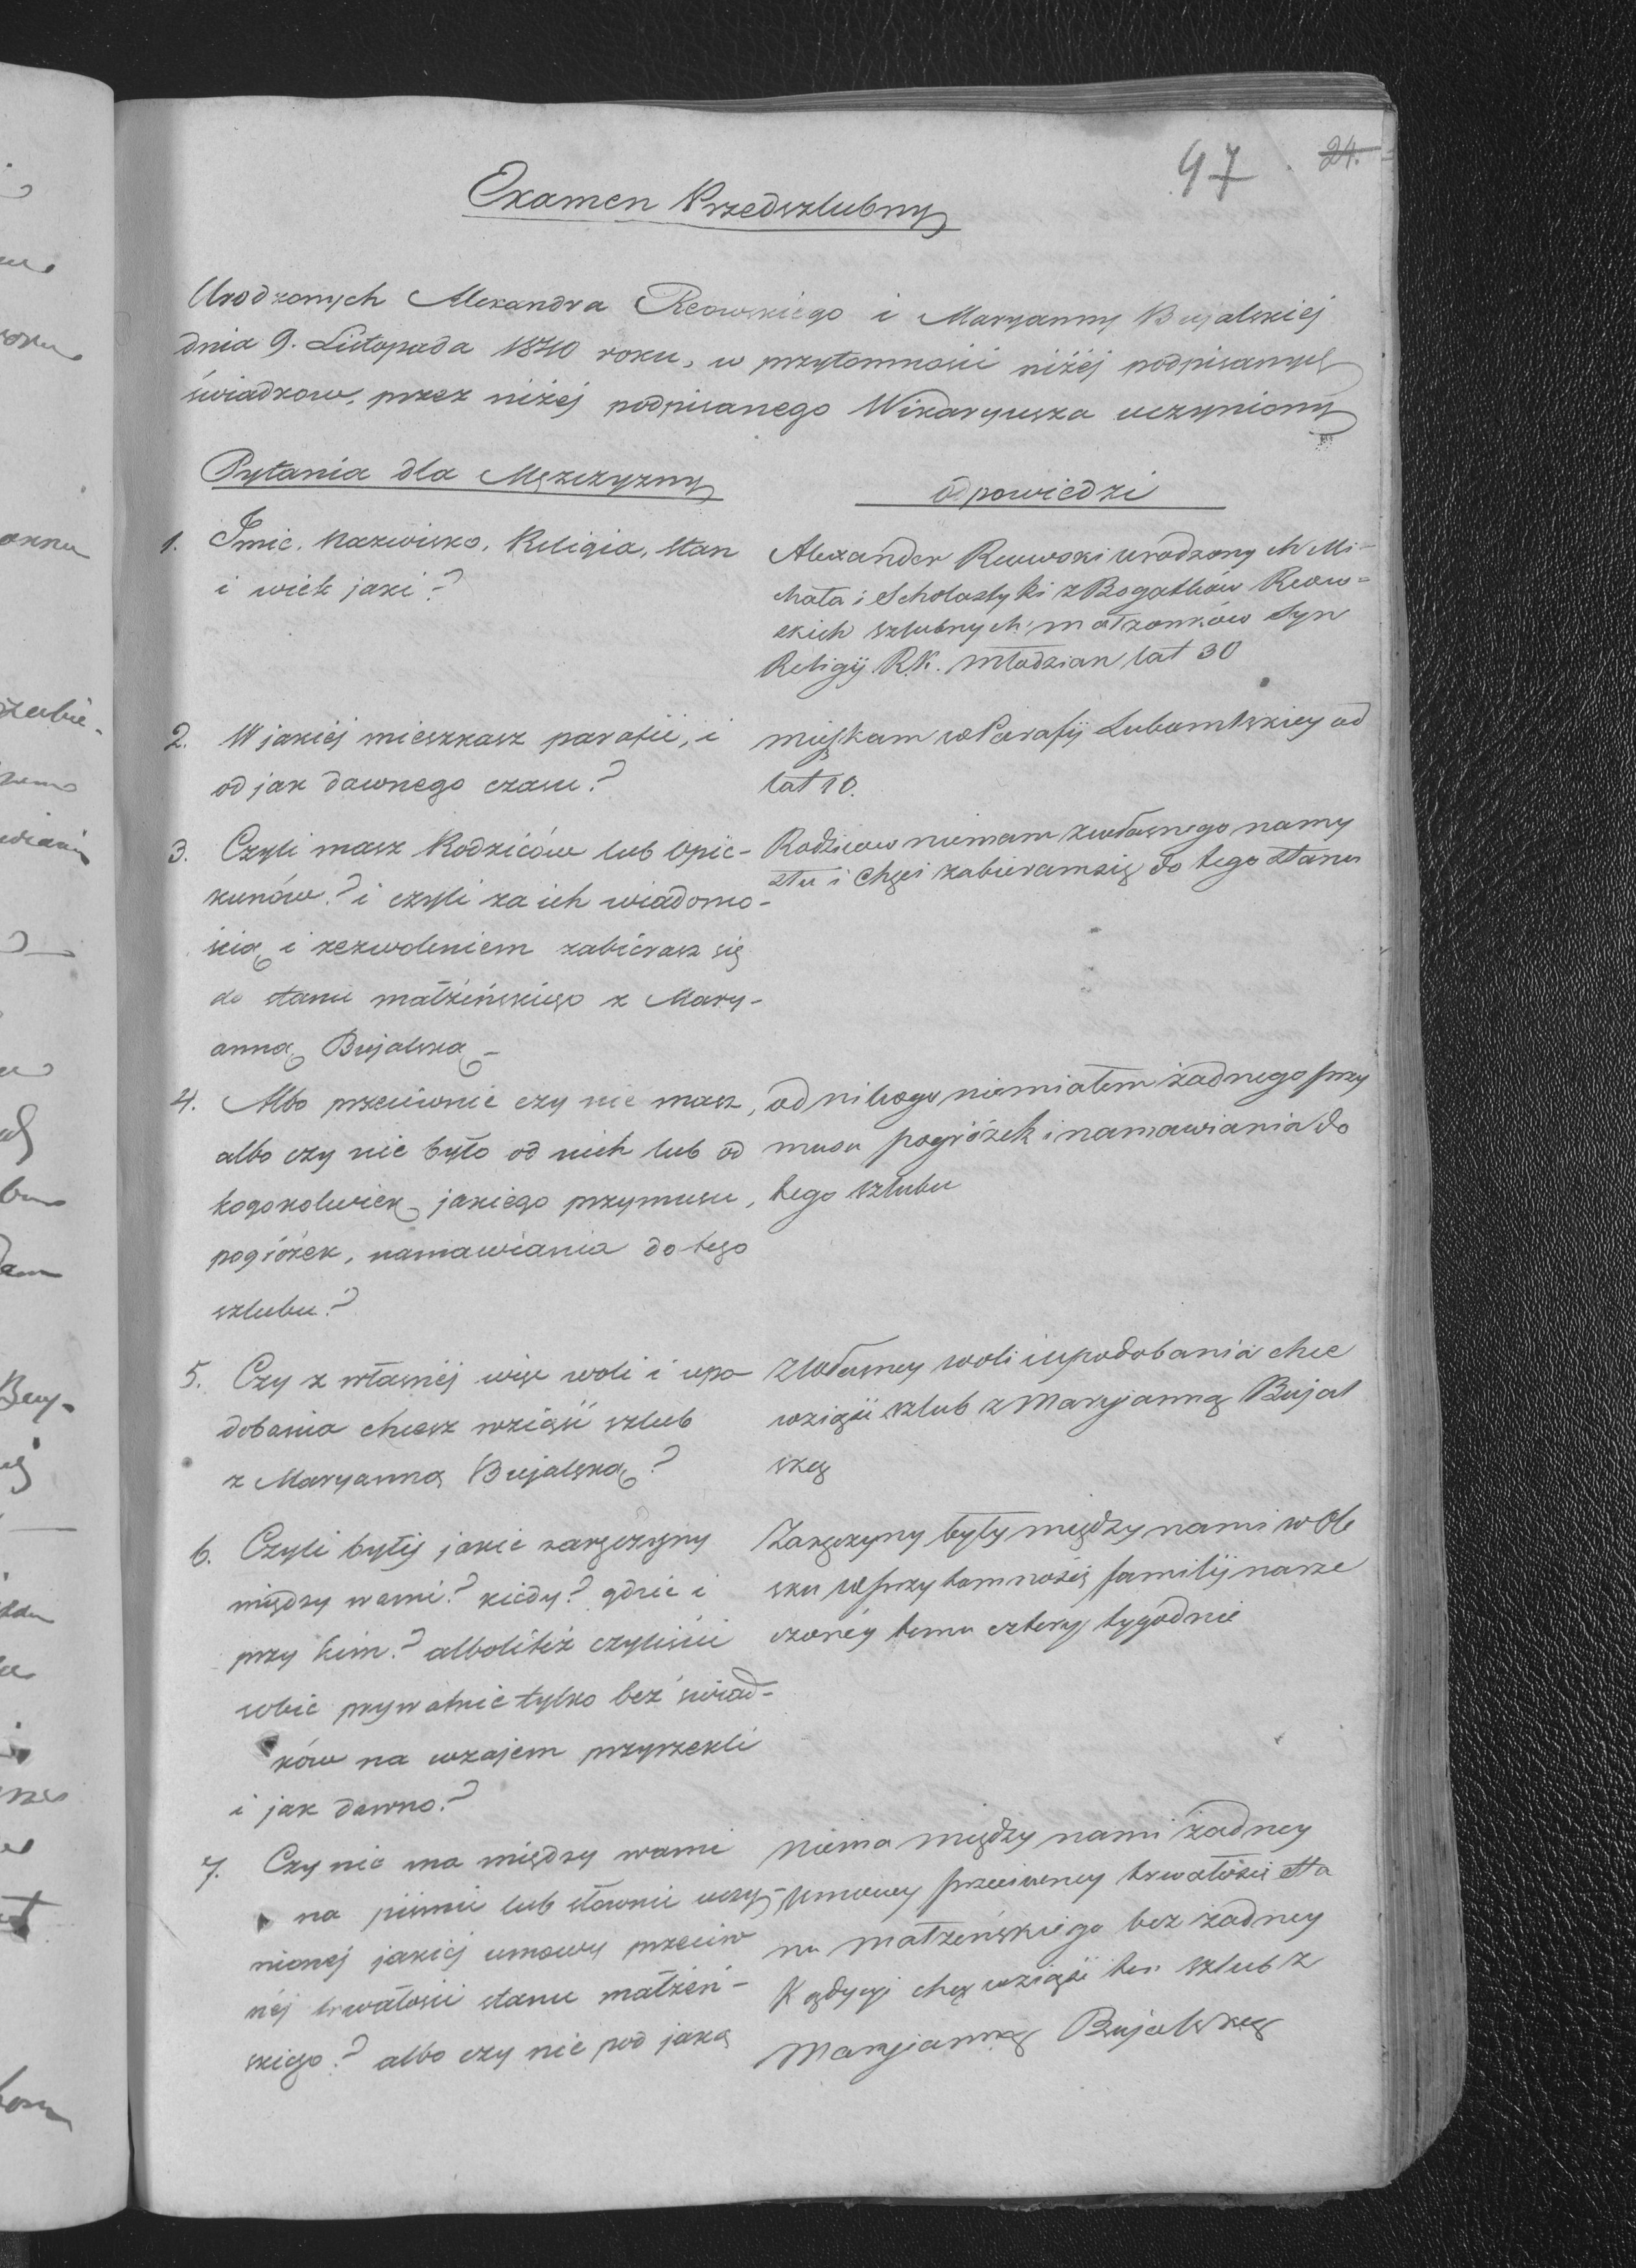 97 . 24.
Examen Przedszlubny
Urodzonych Alexandra Reowskiego i Maryanny Bujalskiéj
dnia 9. Listopada 1840 roku, w przytomności niżéj podpisanych
świadkow, przez niżéj podpisanego Wikaryusza uczyniony
Pytania dla Mężczyzny
odpowiedzi
1. Imie, Nazwisko, Religia, Stan
i wiek jaki?
Alexander Reowski urodzony
chała i Scholastyki z Bogatków Reow=
skich szlubnych małżonków Syn
Religij R.K. Młodzian lat 30
2. W jakiéj mieszkasz parafii, i
od jak dawnego czasu?
mięskam w Parafij od
lat 10.
3. Czyli masz Rodziców lub Opie-
kunów? i czyli za ich wiadomo-
ścią i zezwoleniem zabierasz się
do stanu małżeńskiego z Mary-
anną Bujalską –
Rodzicow niemam zwłasnego namy
słu i Chęci zabieramsię do tego Stanu
4. Albo przeciwnie czy nie masz,
albo czy nie było od nich lub od
kogokolwiek jakiego przymusu,
pogróżek, namawiania do tego
szlubu?
od nikogo niemiałem żadnego przy
musu pogróżek i namawiania do
tego szlubu
5. Czy z własnéj więc woli i upo
dobania chcesz wziąść szlub
z Maryanną Bujalską?
Zwłasney woli iupodobania chce
wziąść szlub z Maryjanną Bujal
ską
6. Czyli byłyj jakie zaręczyny
między wami? kiedy? gdzie i
przy kim? albolitéż czyliście
sobie prywatnie tylko bez świad-
ków na wzajem przyrzekli
i jak dawno?
Zaręczyny były między nami w Ole
sku wprzytomności familij narze
czonéy temu cztery tygodnie
7. Czy nie ma między wami
na piśmie lub słownie uczy-
nionéj jakiéj umowy przeciw
néj trwałości stanu małżeń-
skiego? albo czy nie pod jaką
niema między nami żadney
umowy przeciwney trwałości Sta
nu małżeńskiego bez żadney
Kądycyj chcę wziąść ten szlub z
Maryjanną Bujalską